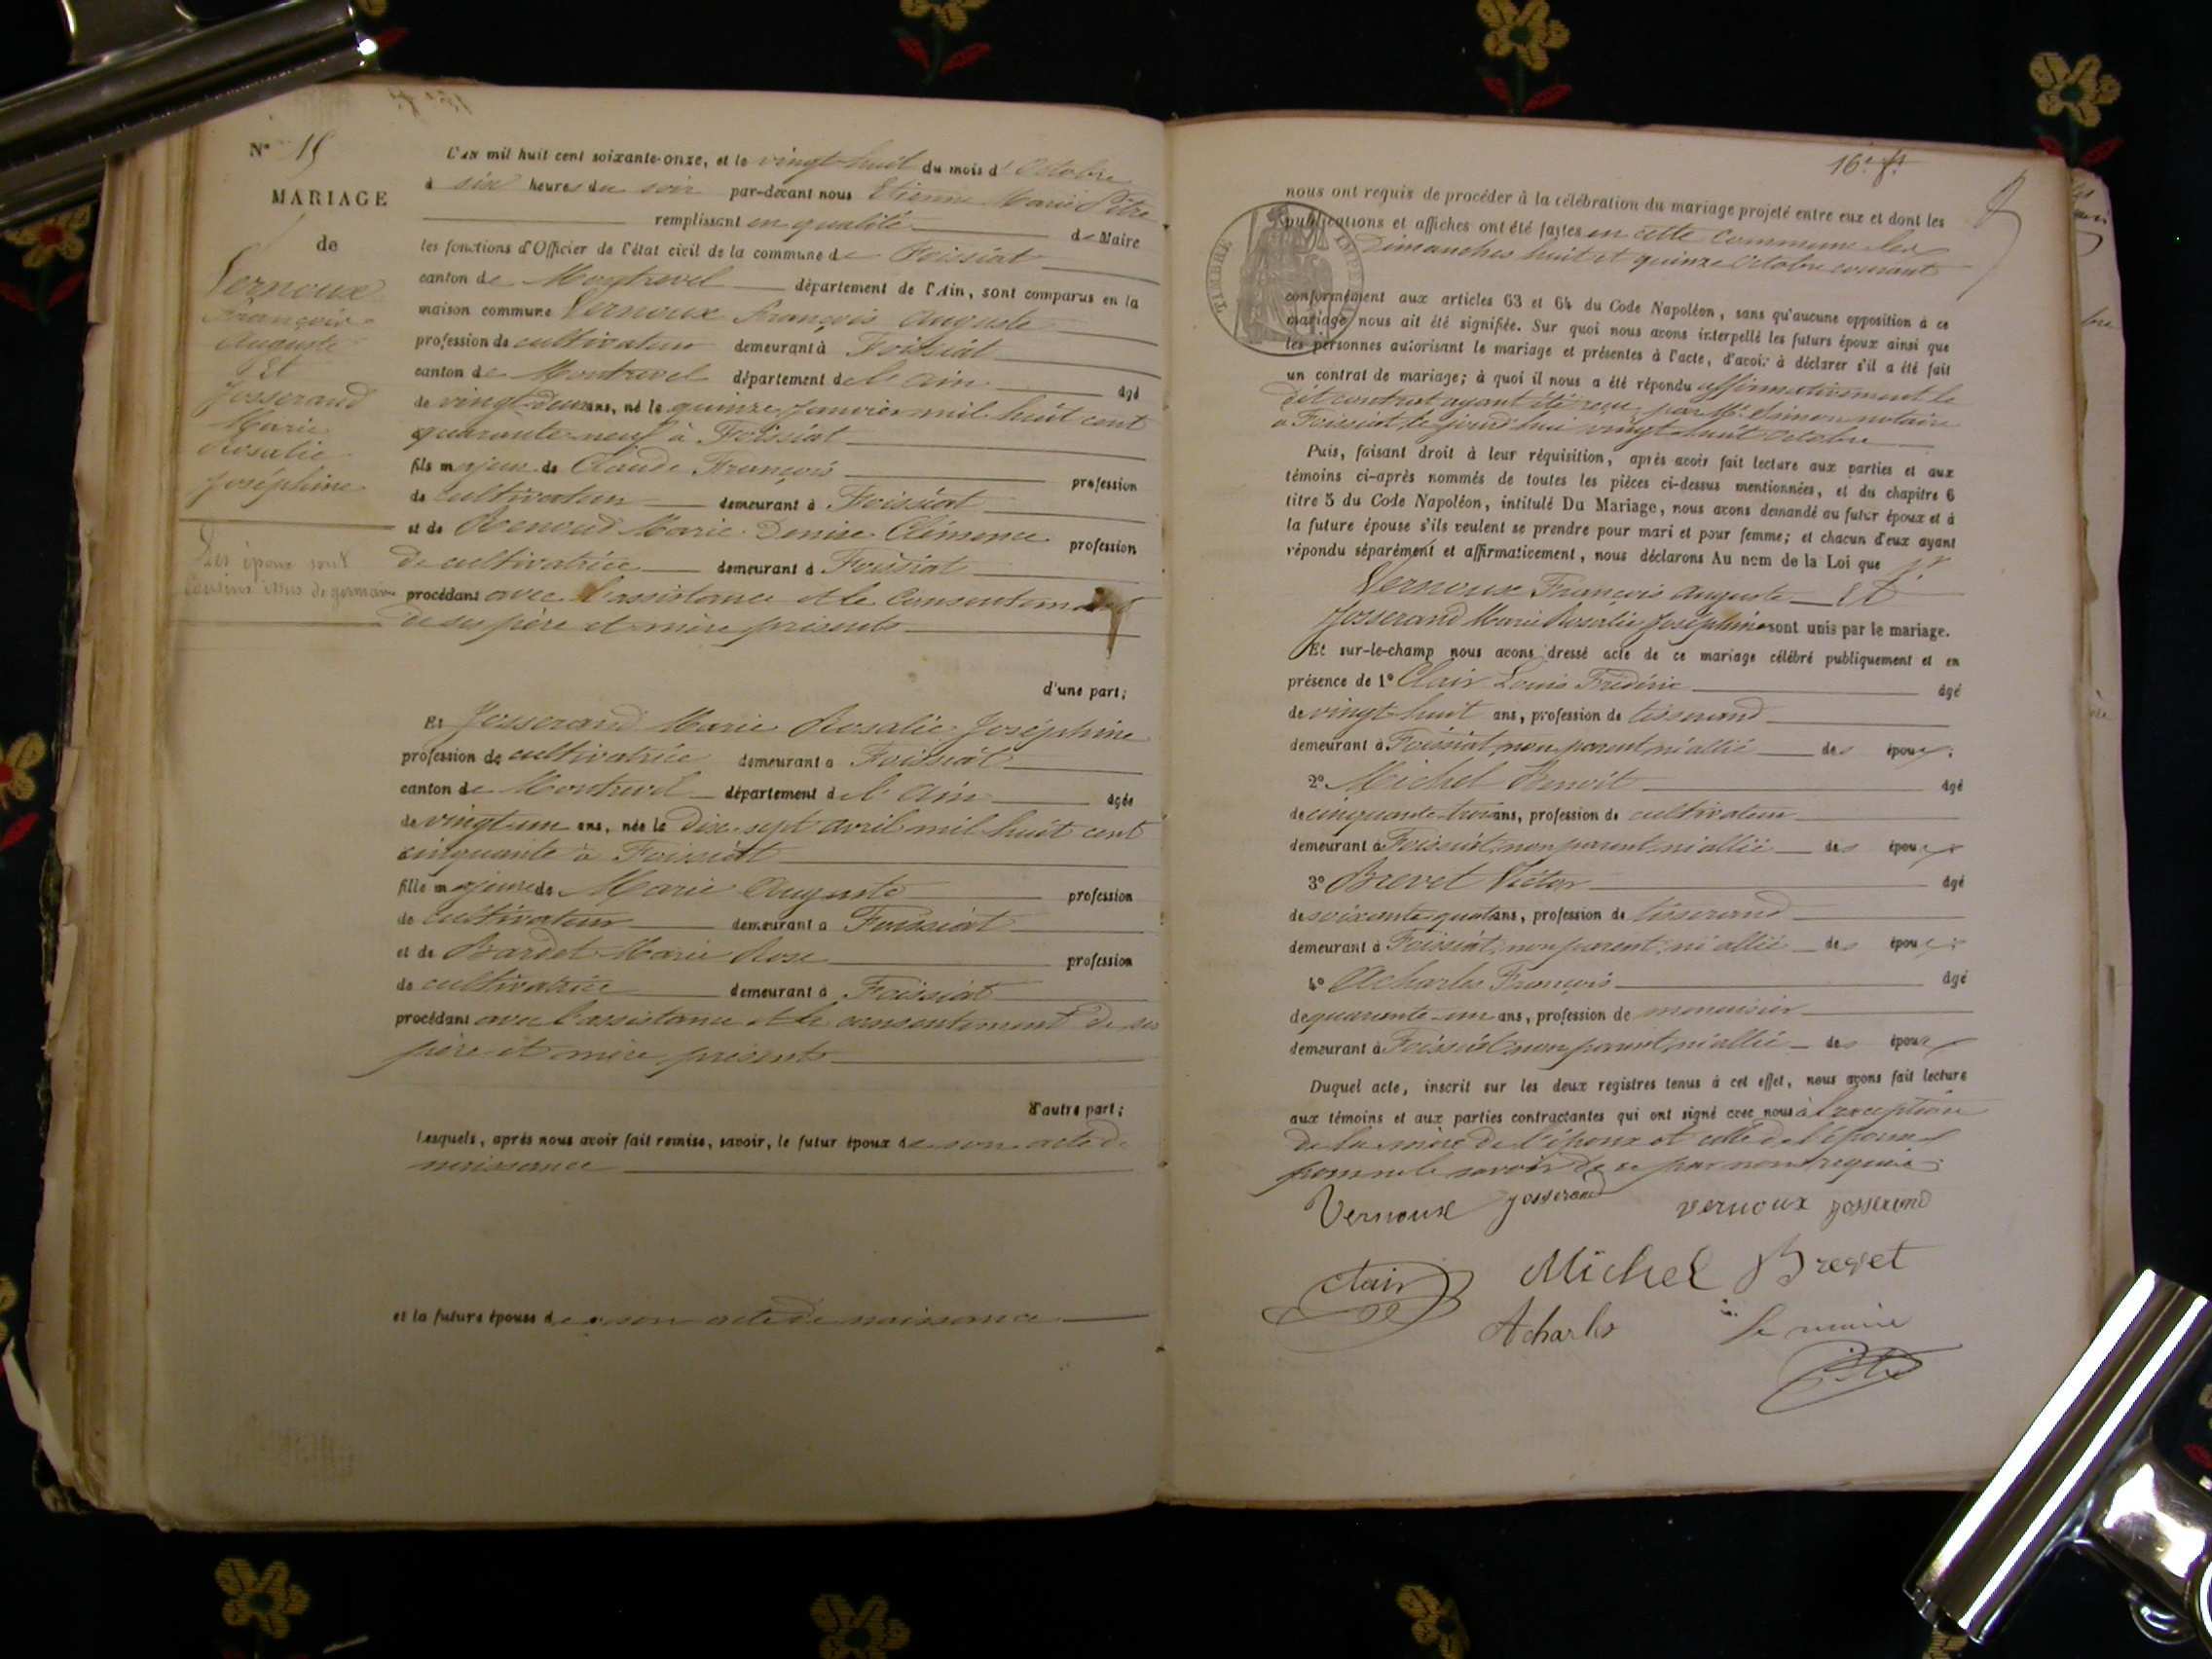 N° 15
MARIAGE
de
Vernoux
François
Auguste
Et
Josserand
Marie
Rosalie
Joséphine
Les époux sont
Cousins issus de germains
L'AN mil huit cent soixante-onze, et le vingt huit du mois d'Octobre
à six heures du soir par-devant nous Etienne Marie Pitre
remplissant en qualité de Maire
les fonctions d'Officier de l'état civil de la commune de Foissiat
canton de Montrevel département de l'Ain, sont comparus en la
maison commune Vernoux François Auguste
profession de cultivateur demeurant à Foissiat
canton de Montrevel département de l'Ain âgé
de vingt-deux ans, né le quinze Janvier mil huit cent
quarante neuf à Foissiat
fils majeur de Claude François profession
de cultivateur demeurant à Foissiat
et de Renoud Marie Denise Clémence profession
de cultivatrice demeurant à Foissiat
procédant avec l'assistance et le consentement
de ses père et mère présents
d'une part;
Et Josserand Marie Rosalie Joséphine
profession de cultivatrice demeurant à Foissiat
canton de Montrevel département de l'Ain âgée
de vingt un ans, née le dix-sept avril mil huit cent
cinquante à Foissiat
fille majeure de Marie Auguste profession
de cultivateur demeurant à Foissiat
et de Bardet Marie Rose profession
de cultivatrice demeurant à Foissiat
procédant avec l'assistance et le consentement de ses
père et mère présents
d'autre part;
Lesquels, après nous avoir fait remise, savoir, le futur époux de son acte de
naissance
et la future épouse de son acte de naissance
16e ft
nous ont requis de procéder à la célébration du mariage projeté entre eux et dont les
publications et affiches ont été faites en cette commune les
Dimanches huit et quinze Octobre courant
TIMBRE IMPERIAL
conformément aux articles 63 et 64 du Code Napoléon, sans qu'aucune opposition à ce
mariage nous ait été signifiée. Sur quoi nous avons interpellé les futurs époux ainsi que
les personnes autorisant le mariage et présentes à l'acte, d'avoir à déclarer s'il a été fait
un contrat de mariage; à quoi il nous a été répondu affirmativement le
dit contrat ayant été reçu par Me Simon notaire
à Foissiat le jourd'hui vingt huit Octobre
Puis, faisant droit à leur réquisition, après avoir fait lecture aux parties et aux
témoins ci-après nommés de toutes les pièces ci-dessus mentionnées, et du chapitre 6
titre 5 du Code Napoléon, intitulé Du Mariage, nous avons demandé au futur époux et à
la future épouse s'ils veulent se prendre pour mari et pour femme; et chacun d'eux ayant
répondu séparément et affirmativement, nous déclarons Au nom de la Loi que
Vernoux François Auguste Et
Josserand Marie Rosalie Joséphine sont unis par le mariage.
Et sur-le-champ nous avons dressé acte de ce mariage célébré publiquement et en
présence de 1° Clair Louis Frédéric âgé
de vingt huit ans, profession de tisserand
demeurant à Foissiat, non parent, ni allié des époux;
2° Michel Benoit âgé
de cinquante-trois ans, profession de cultivateur
demeurant à Foissiat, non parent, ni allié des époux
3° Brevet Victor âgé
de soixante-quatre ans, profession de tisserand
demeurant à Foissiat, non parent, ni allié des époux
4° Acharles François âgé
de quarante-un ans, profession de menuisier
demeurant à Foissiat, non parent, ni allié des époux
Duquel acte, inscrit sur les deux registres tenus à cet effet, nous avons fait lecture
aux témoins et aux parties contractantes qui ont signé avec nous à l'exception
de la mère de l'époux et celle de l'épouse
pour ne le savoir de ce par nous requis.
Vernoux Josserand Vernoux Josserand
Clair Michel Brevet
Acharles le maire
Pitre